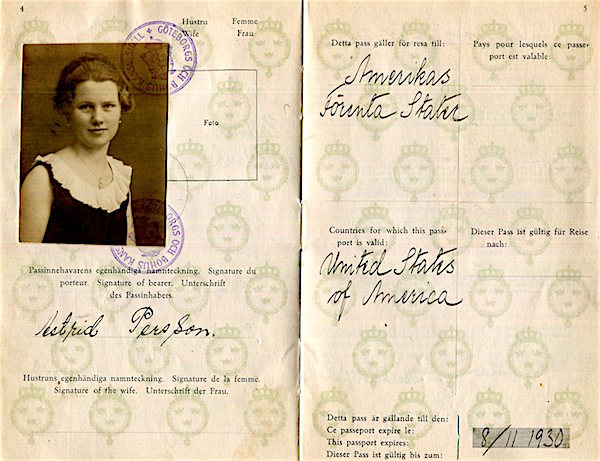 4
Hustru Femme
Wife Frau
GÖTEBORGS OCH BOHUS
Foto
GÖTEBORGS OCH BOHUS
Passinnehavarens egenhändiga namnteckning. Signature du
porteur. Signature of bearer. Unterschrift
des Passinhabers.
Astrid Persson.
Hustruns egenhändiga namnteckning. Signature de la femme.
Signature of the wife. Unterschrift der Frau.
5
Detta pass gäller för resa till:
Pays pour lesquels ce passe-
port est valable:
Amerikas
Förenta Stater
Countries for which this pass-
port is valid:
Dieser Pass ist gültig für Reise
nach:
United States
of America
Detta pass är gällande till den:
Ce passeport expire le:
This passport expires:
Dieser Pass ist gültig bis zum:
8/11 1930